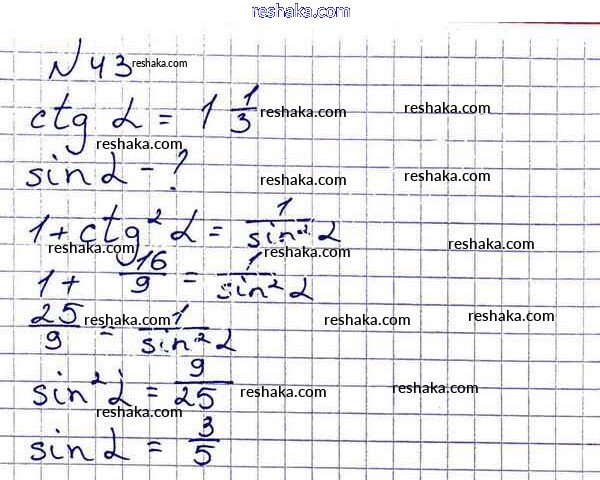 reshaka.com
№ 43 reshaka.com
ctg α = 1 1/3 reshaka.com reshaka.com
reshaka.com
sin α - ? reshaka.com reshaka.com
1 + ctg² α = 1/sin² α
reshaka.com reshaka.com reshaka.com
1 + 16/9 = 1/sin² α
25/9 = 1/sin² α
reshaka.com reshaka.com reshaka.com
sin² α = 9/25 reshaka.com reshaka.com
reshaka.com
sin α = 3/5
reshaka.com reshaka.com